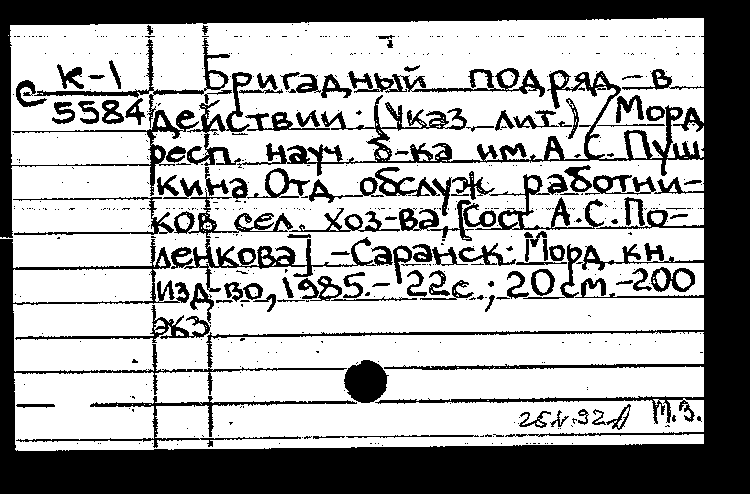 С К-1
5584
Бригадный подряд - в
действии: (Указ. лит.) / Морд.
респ. науч. б-ка им. А.С. Пуш-
кина. Отд. обслуж. работни-
ков сел. хоз-ва; [Сост. А.С. По-
ленкова]. - Саранск: Морд. кн.
изд-во, 1985. - 22 с.; 20 см. - 200
экз
М.З.